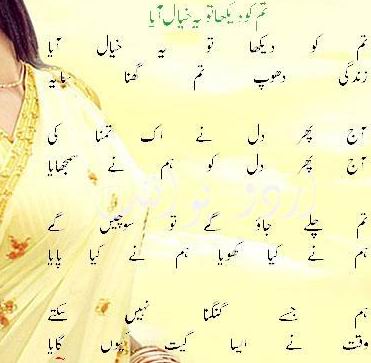 تم کو دیکھا تو یہ خیال آیا
تم کو دیکھا تو یہ خیال آیا
زندگی دھوپ تم گھنا سایہ
آج پھر دل نے اک تمنا کی
آج پھر دل کو ہم نے سمجھایا
تم چلے جاؤ گے تو سوچیں گے
ہم نے کیا کھویا ہم نے کیا پایا
ہم جسے گنگنا نہیں سکتے
وقت نے ایسا گیت کیوں گایا